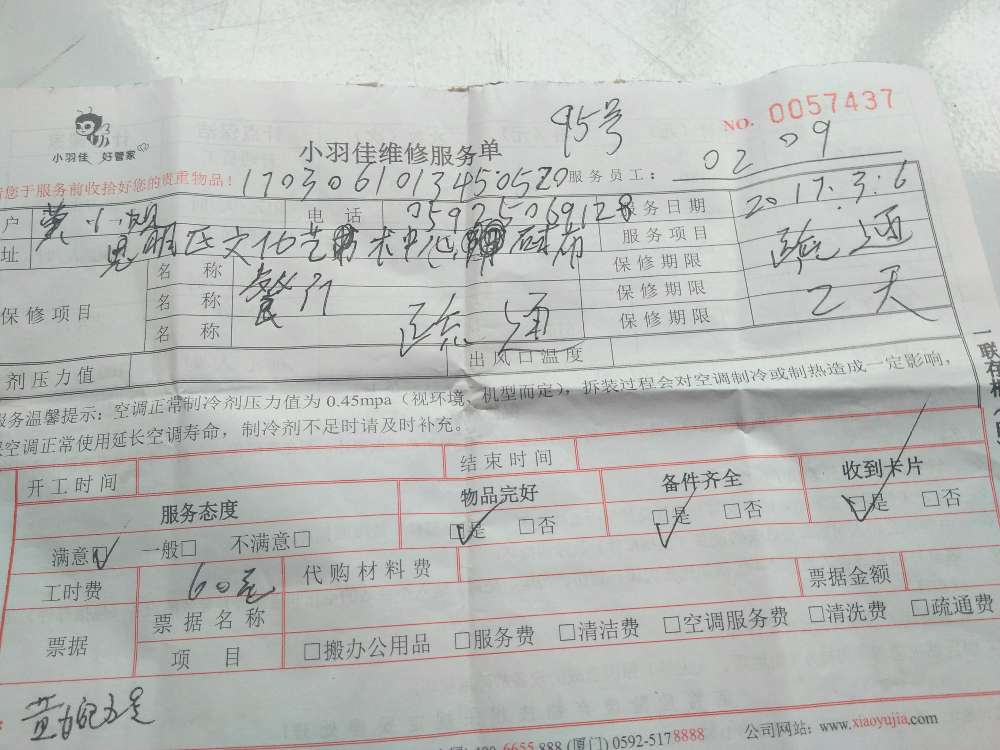 小羽佳 好管家
小羽佳维修服务单
95号
NO. 0057437
请您于服务前收拾好您的贵重物品!
1703061013450520
服务员工: 0209
户
电话 05925069128
服务日期 2017.3.6
址 思明区文化艺术中心
服务项目 疏通
保修项目
名称
保修期限
名称
保修期限
名称 疏通
保修期限 2天
剂压力值
出风口温度
服务温馨提示: 空调正常制冷剂压力值为 0.45mpa (视环境、机型而定), 拆装过程会对空调制冷或制热造成一定影响,
空调正常使用延长空调寿命, 制冷剂不足时请及时补充。
开工时间
结束时间
服务态度
物品完好
备件齐全
收到卡片
满意☑ 一般□ 不满意□
☑是 □否
☑是 □否
☑是 □否
工时费 60元
代购材料费
票据金额
票据
票据名称
项目
□搬办公用品 □服务费 □清洁费 □空调服务费 □清洗费 □疏通费
6655 888 (厦门) 0592-5178888
公司网站: www.xiaoyujia.com